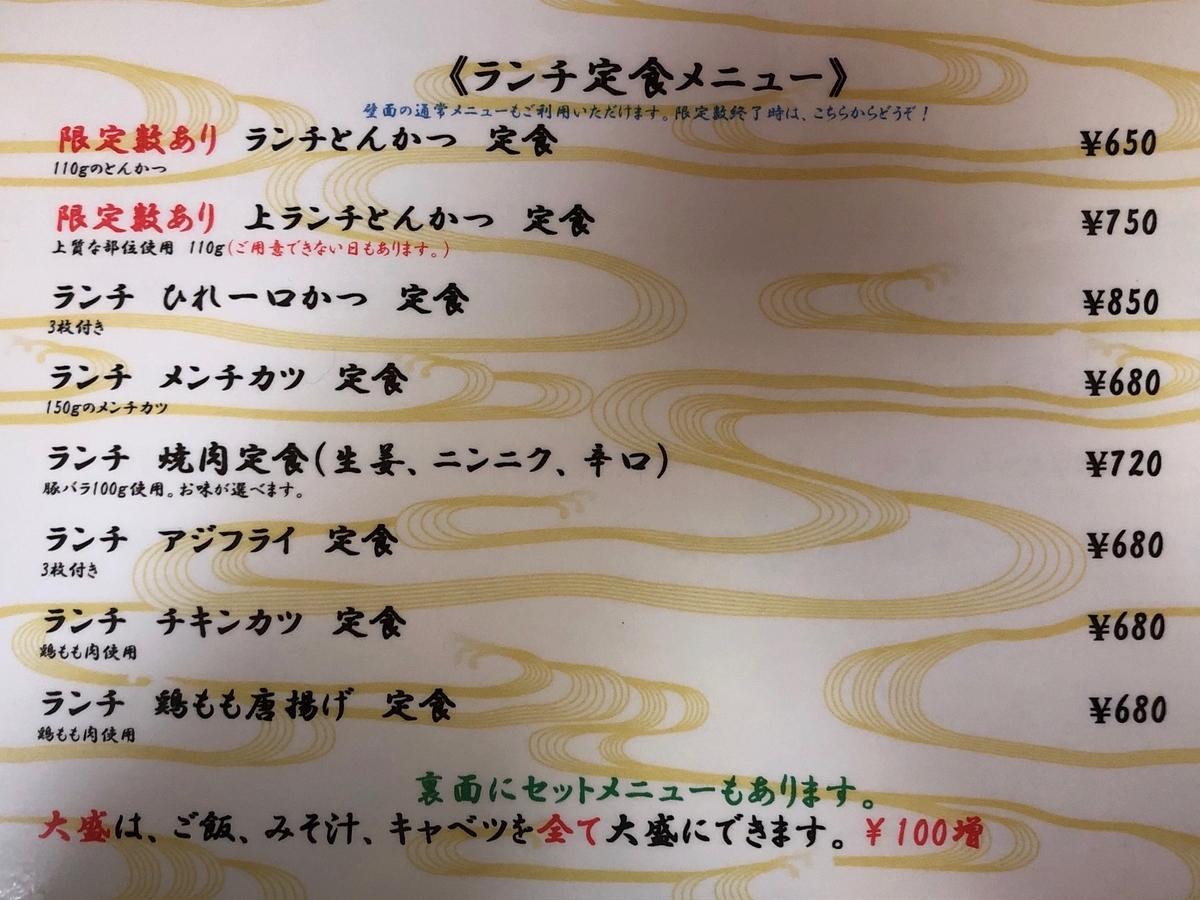 《ランチ定食メニュー》
壁面の通常メニューもご利用いただけます。限定数終了時は、こちらからどうぞ！
限定数あり ランチとんかつ 定食 ¥650
110gのとんかつ
限定数あり 上ランチとんかつ 定食 ¥750
上質な部位使用 110g(ご用意できない日もあります。)
ランチ ひれ一口かつ 定食 ¥850
3枚付き
ランチ メンチカツ 定食 ¥680
150gのメンチカツ
ランチ 焼肉定食(生姜、ニンニク、辛口) ¥720
豚バラ100g使用。お味が選べます。
ランチ アジフライ 定食 ¥680
3枚付き
ランチ チキンカツ 定食 ¥680
鶏もも肉使用
ランチ 鶏もも唐揚げ 定食 ¥680
鶏もも肉使用
裏面にセットメニューもあります。
大盛は、ご飯、みそ汁、キャベツを全て大盛にできます。¥100増